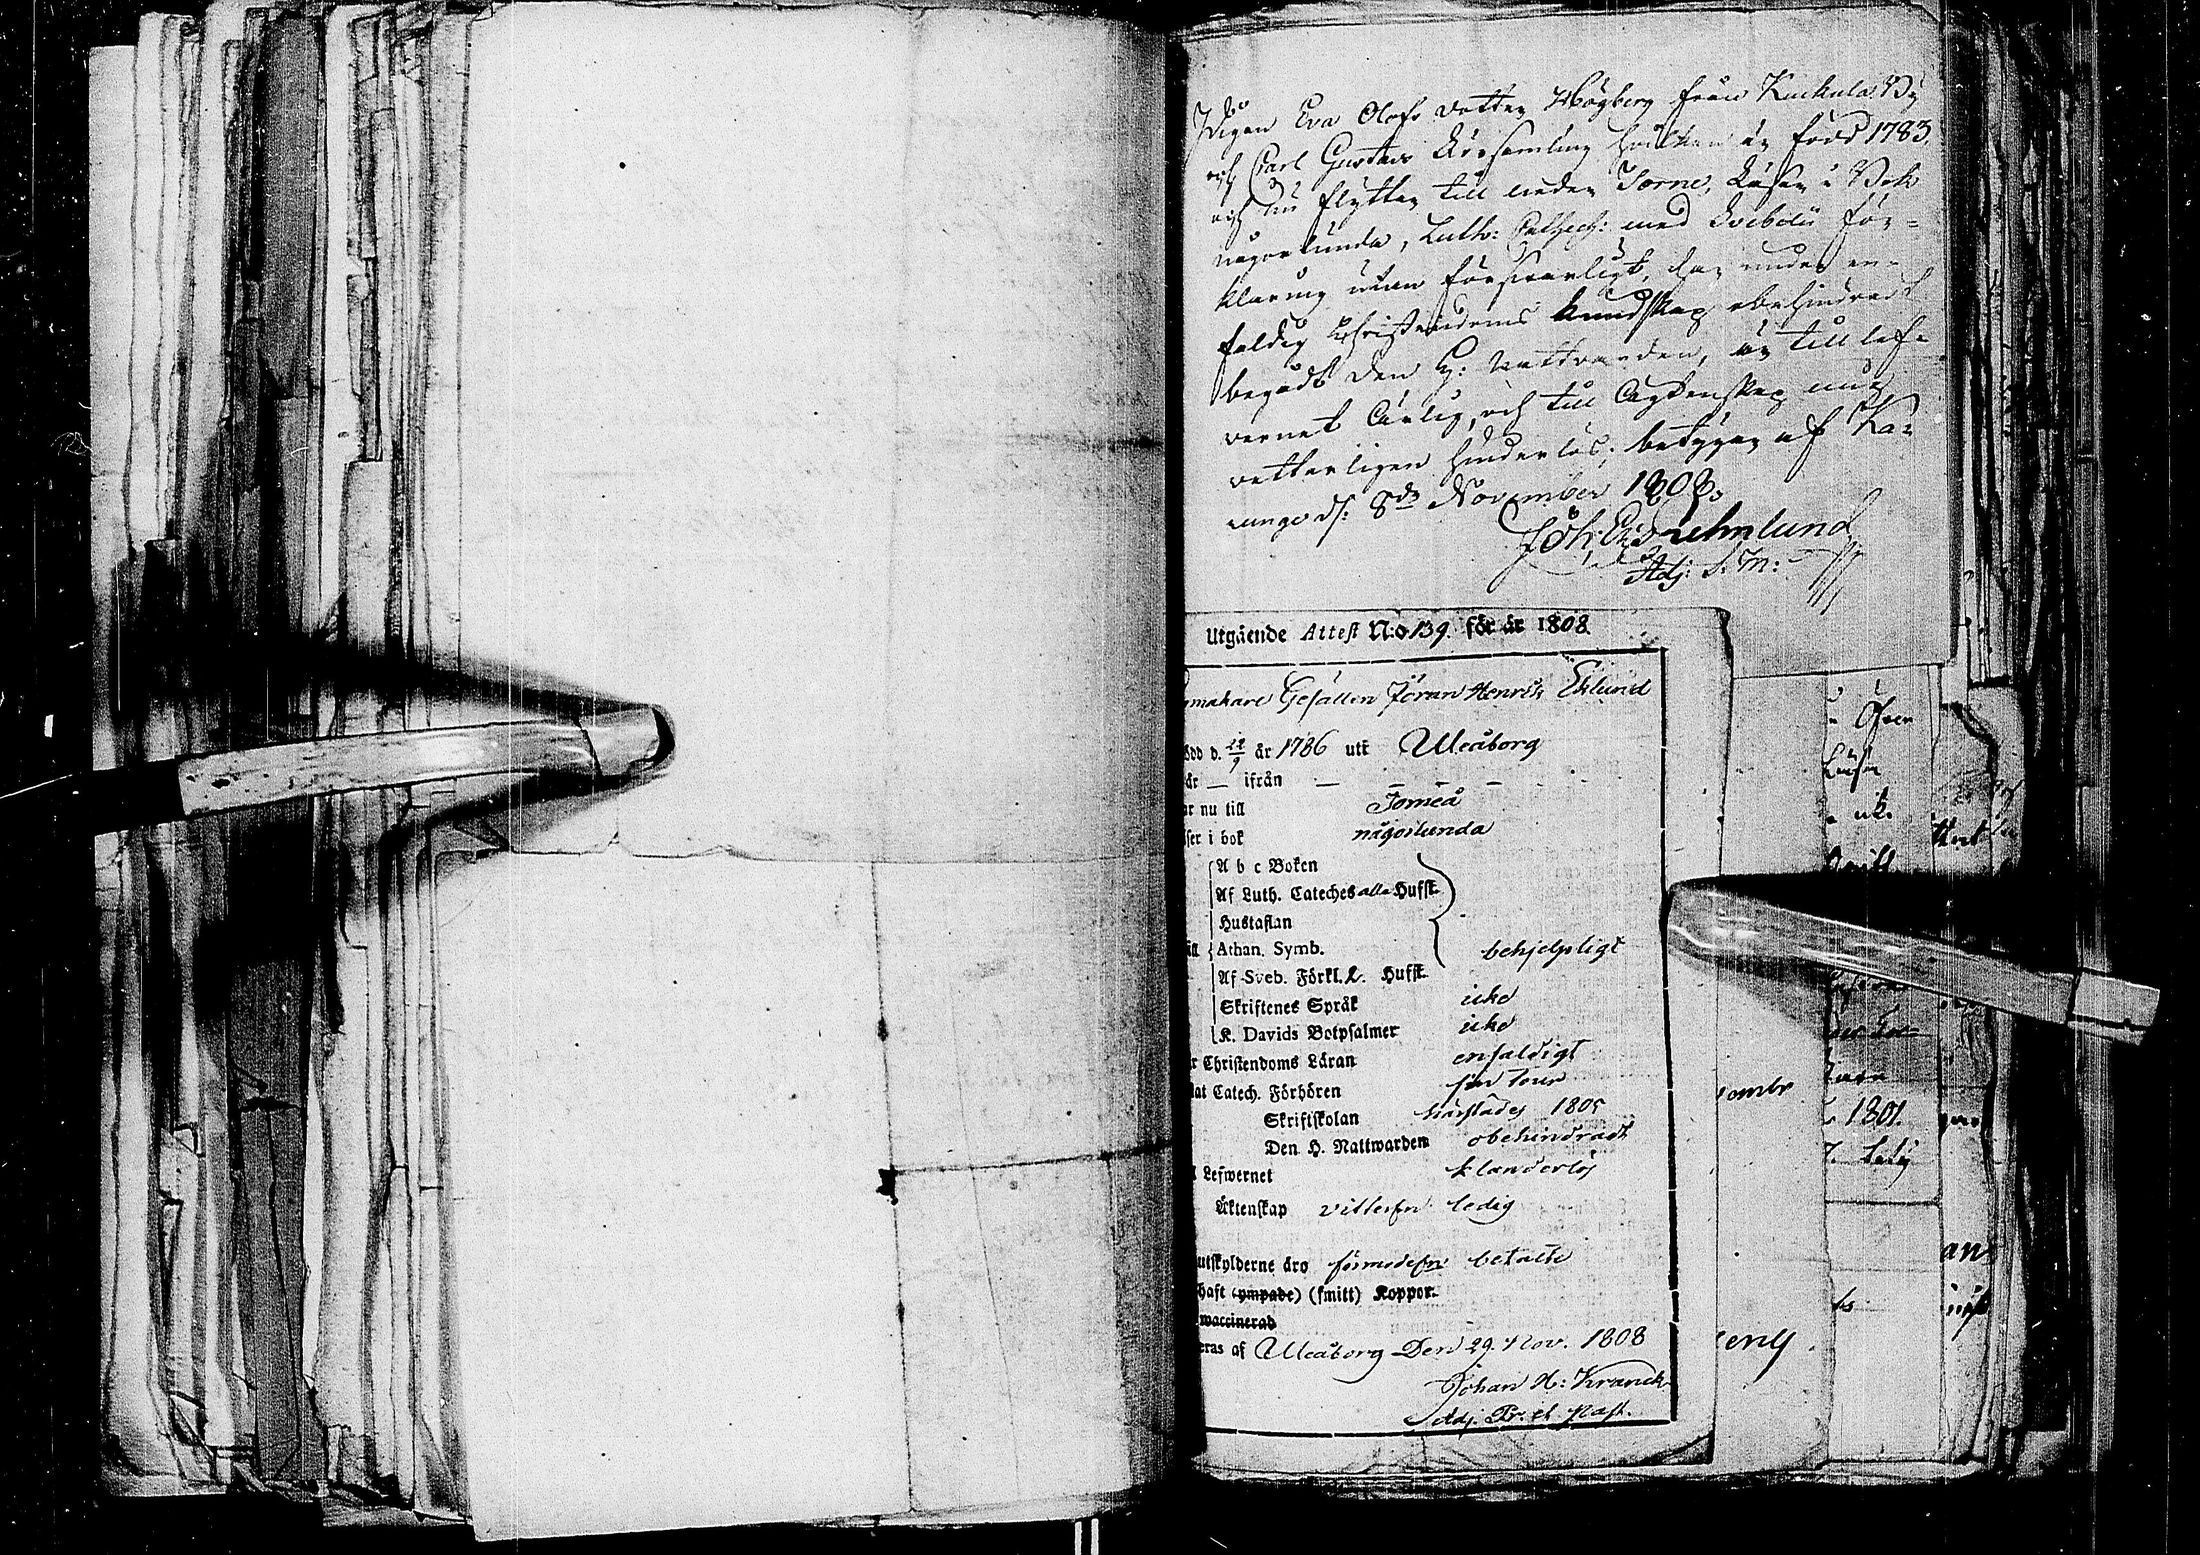 Pigan Eva Olofs dotter Högberg från Kuckula By
och Carl Gustavs Församling hvilken är född 1783,
och nu flytter till neder Torne, Läser i Bok
någorlunda, Luth: Cathech: med Svebelii för-
klaring utan försvarligt, har under en-
faldig Christendoms kundskap obehindradt
begådt den H: Nattvarden, är till lef-
vernet ärlig, och till Ägtenskap
vetterligen hinderlös; betygar af Ka-
runge d: 8de November 1808.
Joh:
Adj: S: M:
Utgående Attest N:o 139. för år 1808
makare Gesällen Jöran Henrik Eklund
ödd d. år 1786 uti Uleåborg
är — ifrån — — — —
ar nu till Torneå
äser i bok någorlunda
A b c Boken
Af Luth. Cateches alla Hufst.
Hustaflan
Athan. Symb. behjelpligt
Af Sveb. Förkl. 2. Hufst
Skriftenes Språk icke
K. Davids Botpsalmer icke
r Christendoms Läran enfaldigt
at Catech. Förhören sin tour
Skriftskolan härstädes 1805
Den H. Nattwarden obehindradt
Lefwernet klanderlös
Äktenskap vitterl:n ledig
utskylderne äro förmodel:n betalte
haft (ympade) (smitt) Koppor.
waccinerad
eras af Uleåborg Den 29. Nov. 1808
Johan H: Kranck
Adj. Pr. et Past.
ombr
eng
Öfver
Läser
1801.